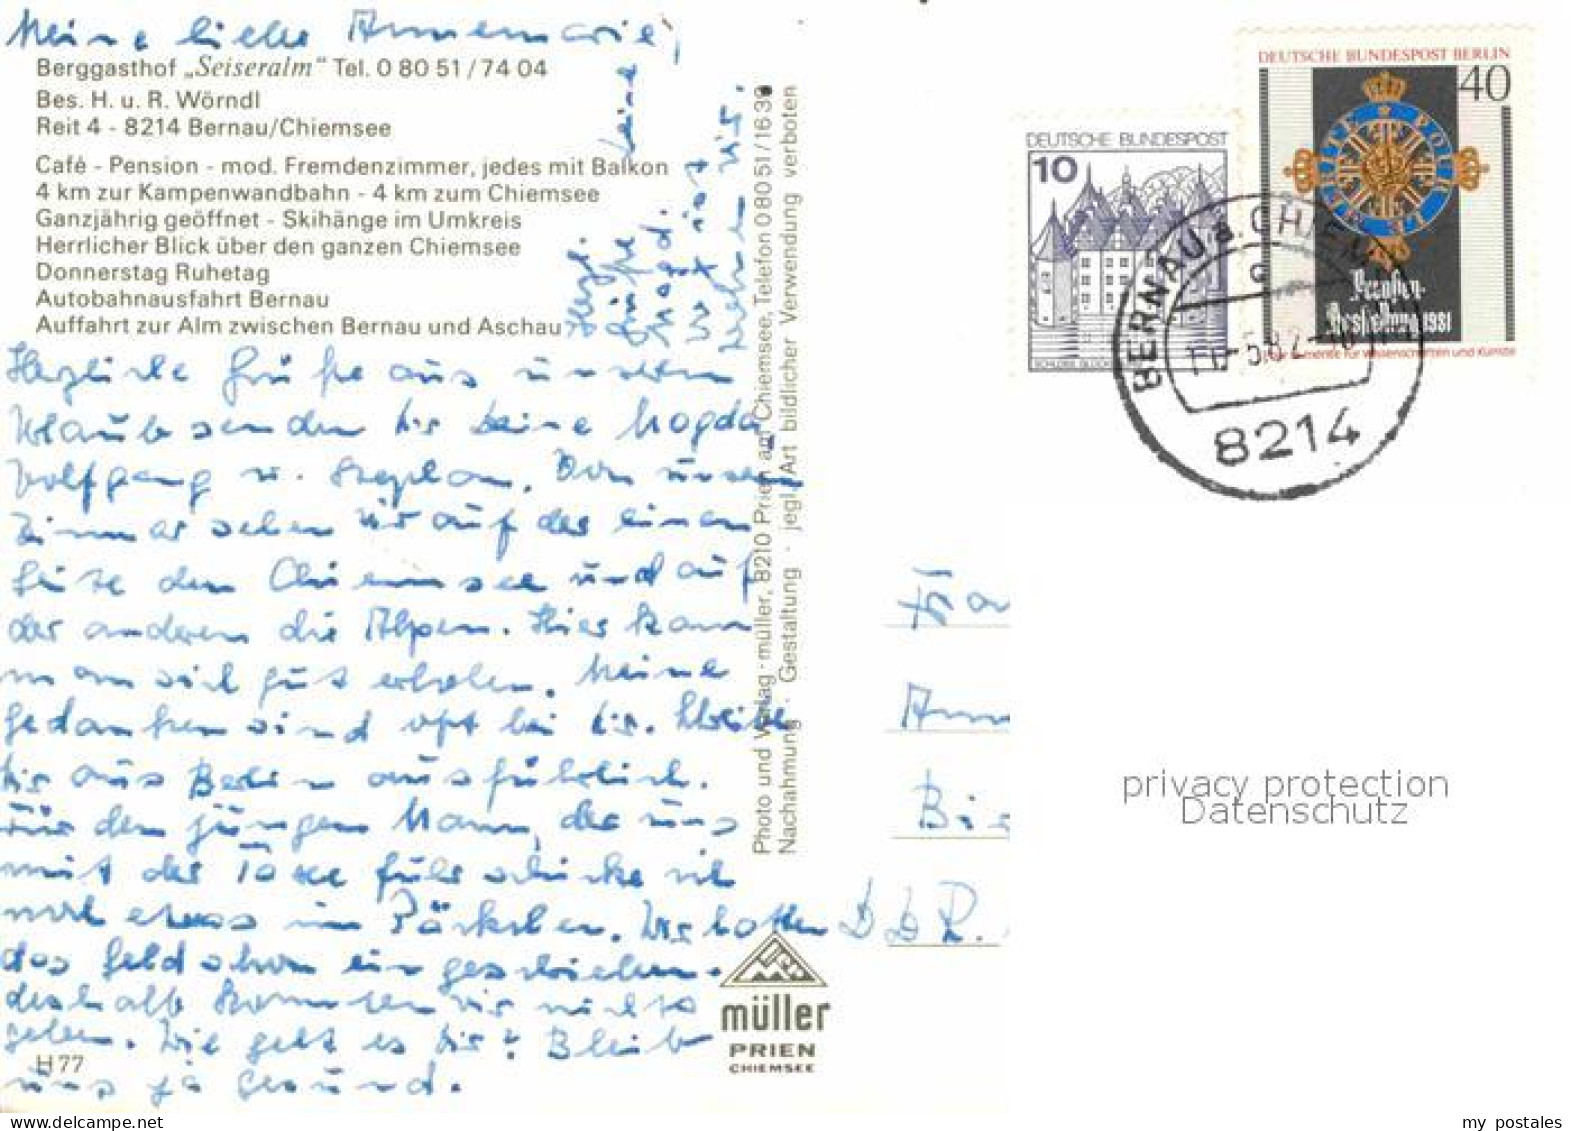 Meine liebe Annemarie,
Berggasthof „Seiseralm“ Tel. 0 80 51 / 74 04
Bes. H. u. R. Wörndl
Reit 4 - 8214 Bernau/Chiemsee
Café - Pension - mod. Fremdenzimmer, jedes mit Balkon
4 km zur Kampenwandbahn - 4 km zum Chiemsee
Ganzjährig geöffnet - Skihänge im Umkreis
Herrlicher Blick über den ganzen Chiemsee
Donnerstag Ruhetag
Autobahnausfahrt Bernau
Auffahrt zur Alm zwischen Bernau und Aschau
Herzliche Grüße aus unserem
Urlaub senden dir deine Magda,
Wolfgang u. Stephan. Von unserem
Zimmer sehen wir auf der einen
Seite den Chiemsee und auf
der anderen die Alpen. Hier kann
man sich gut erholen. Meine
Gedanken sind oft bei dir. Schreibe
dir aus Berlin ausführlich.
Für den jungen Mann, der uns
mit der Taxe fuhr schicke ich
noch etwas im Päckchen. Wir hatten
das Geld schon eingeschrieben.
deshalb konnten wir nichts
geben. Wie geht es dir? Bleib
uns ja gesund.
Herzl.
Grüße
Deine
Magd.
ist
H 77
Photo und Verlag · müller, 8210 Prien am Chiemsee, Telefon 0 80 51 / 16 39
Nachahmung · Gestaltung · jegl. Art bildlicher Verwendung verboten
müller
PRIEN
CHIEMSEE
DEUTSCHE BUNDESPOST
10
DEUTSCHE BUNDESPOST BERLIN
40
Preußen-
Ausstellung 1981
BERNAU a. CHIEM
c
8214
Fra
Ann
Bis
DDR.
privacy protection
Datenschutz
my_postales